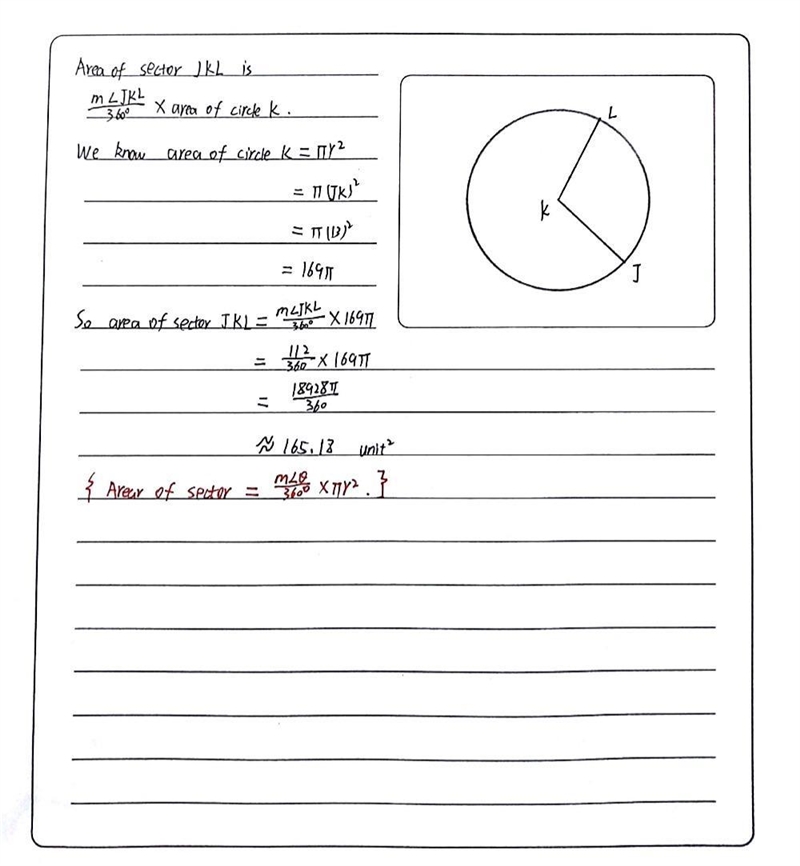 Area of sector JKL is
m∠JKL/360° × area of circle K.
We know area of circle K = πr²
= π(JK)²
= π(13)²
= 169π
So area of sector JKL = m∠JKL/360° × 169π
= 112/360 × 169π
= 18928π/360
≈ 165.18 unit²
{ Arear of sector = m∠θ/360° × πr². }
L
K
J